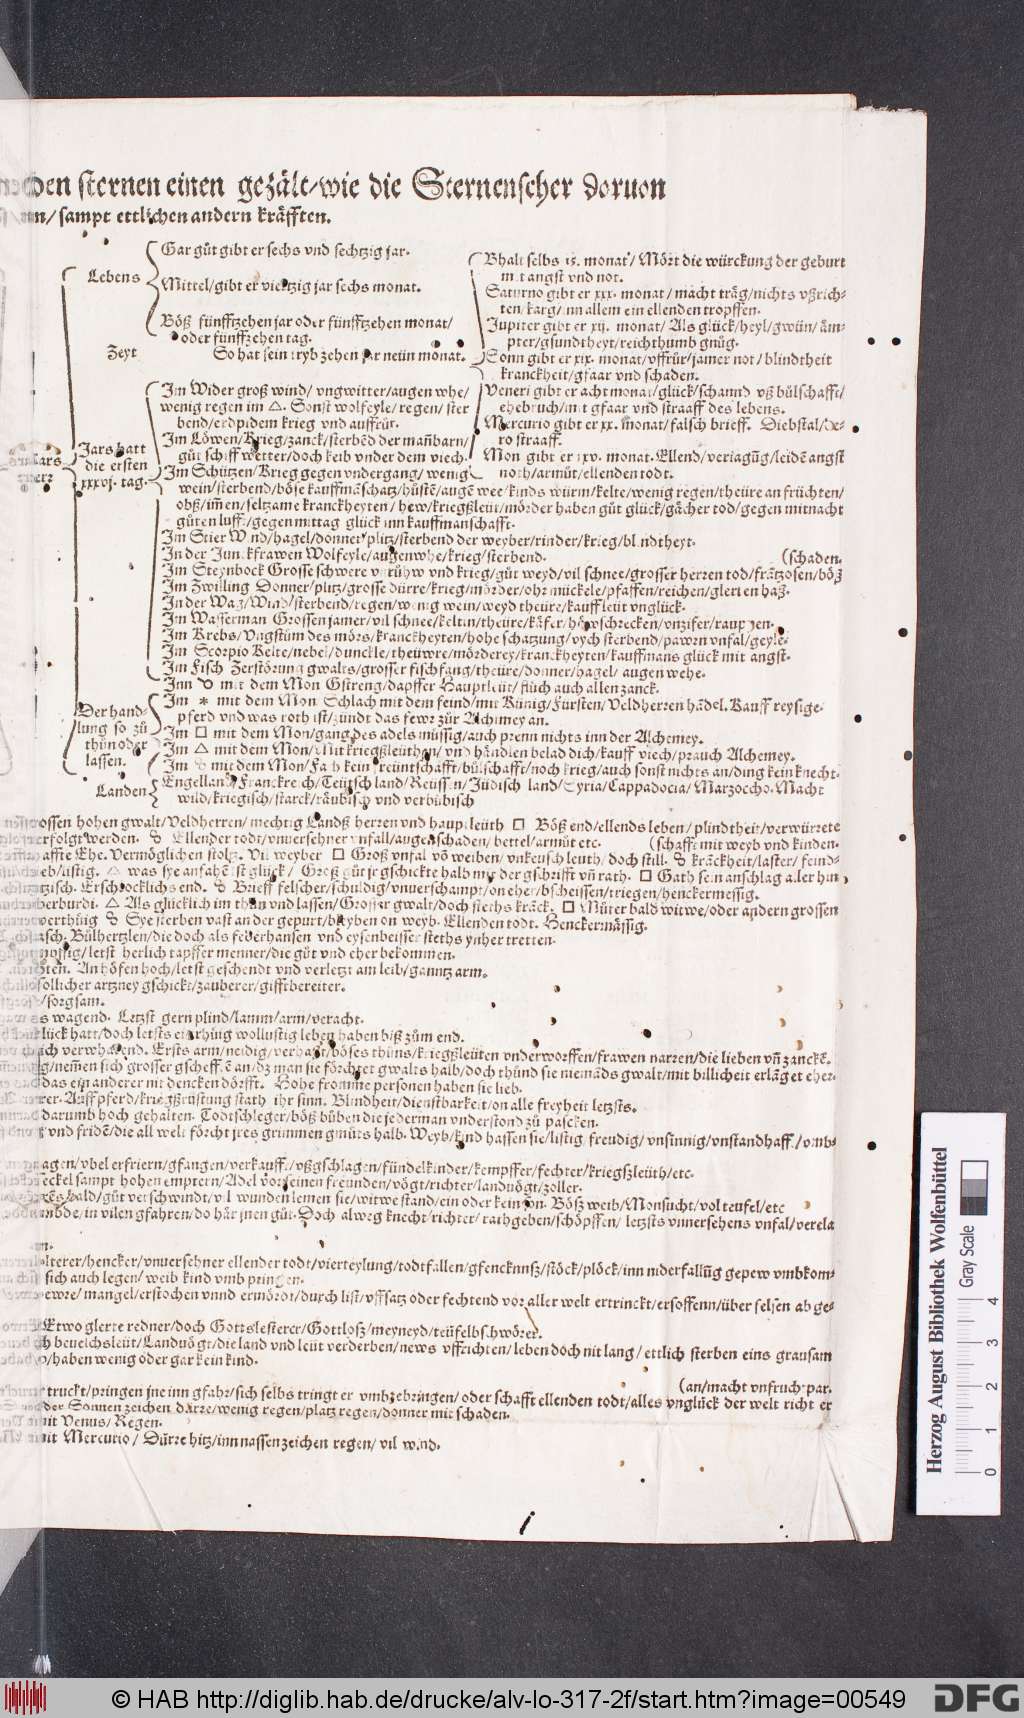 den sternen einen gezält/wie die Sternenseher doruon
/sampt ettlichen andern kräfften.
Lebens
Gar gůt gibt er sechs vnd sechtzig jar.
Mittel/gibt er viertzig jar sechs monat.
Böß fünfftzehen jar oder fünfftzehen monat/
oder fünfftzehen tag.
Zeyt
So hat sein tryb zehen jar neün monat.
Bhalt selbs monat/ Mört die würckung der geburt
mit angst vnd not.
Saturno gibt er xxx. monat/ macht träg/nichts vßrich-
ten/karg/inn allem ein ellenden tropffen.
Jupiter gibt er xij. monat/ Als glück/heyl/gwün/äm-
pter/gsundtheyt/reichthumb gnůg.
Sonn gibt er xix. monat/vffrůr/jamer not/blindtheit
kranckheit/gfaar vnd schaden.
Veneri gibt er acht monat/glück/schannd vß bůlschafft/
ehebruch/mit gfaar vnd straaff des lebens.
Mercurio gibt er xx. monat/falsch brieff. Diebstal/de-
ro straaff.
Mon gibt er xxv. monat. Ellend/veriagūg/leidē angst
noth/armůt/ellenden todt.
Jars hatt
die ersten
xxxvj. tag.
Im Wider groß wind/vngwitter/augen whe/
wenig regen im △. Sonst wolfeyle/regen/ster
bend/erdpidem krieg vnd auffrůr.
Im Löwen/Krieg/zanck/sterbēd der mañbarn/
gůt schiff wetter/doch keib vnder dem viech.
Im Schützen/Krieg gegen vndergang/wenig
wein/sterbend/böse kauffmāschatz/hůstē/augē wee/kinds würm/kelte/wenig regen/theüre an früchten/
obß/im̄en/seltzame kranckheyten/hew/kriegßleüt/mörder haben gůt glück/gächer tod/gegen mitnacht
gůten lufft/gegen mittag glück inn kauffmanschafft.
Im Stier Wind/hagel/donner/plitz/sterbend der weyber/rinder/krieg/blindtheyt.
In der Junckfrawen Wolfeyle/augenwhe/krieg/sterbend. (schaden.
Im Steynbock Grosse schwere vnrůhw vnd krieg/gůt weyd/vil schnee/grosser herren tod/frātzosen/böß
Im Zwilling Donner/plitz/grosse dürre/krieg/mörder/ohrmückele/pfaffen/reichen/glerten haß.
In der Wag/Wind/sterbend/regen/wenig wein/weyd theüre/kauffleüt vnglück.
Im Wasserman Grossen jamer/vil schnee/keltin/theüre/käfer/höwschrecken/vnzifer/rauppen.
Im Krebs/Vngstüm des mörs/kranckheyten/hohe schatzung/vych sterbend/pawrn vnfal/geyle.
Im Scorpio Kelte/nebel/dunckle/theüwre/mörderey/kranckheyten/kauffmans glück mit angst.
Im Fisch Zerstörung gwalts/grosser fischfang/theüre/donner/hagel/augen wehe.
Der hand-
lung so zů
thůn oder
lassen.
Inn ☌ mit dem Mon Gstreng/dapffer Hauptleüt/flüch auch allen zanck.
Im ✶ mit dem Mon Schlach mit dem feind/mit Künig/Fürsten/Veldherren hādel. Kauff reysige.
pferd vnd was roth ist/zündt das fewr zůr Alchimey an.
Im □ mit dem Mon/gang des adels můssig/auch prenn nichts inn der Alchemey.
Im △ mit dem Mon/Mit kriegßleüthen/vnd händlen belad dich/kauff viech/prauch Alchemey.
Im ☍ mit dem Mon/Fah kein freüntschafft/bůlschafft/noch krieg/auch sonst nichts an/ding kein knecht.
Landen
Engelland/Franckreich/Teütschland/Reüssen/Jüdisch land/Syria/Cappadocia/Marzocho. Macht
wild/kriegisch/starck/räubisch vnd verbübisch
grossen hohen gwalt/Veldherren/mechtig Landß herren vnd hauptleüth □ Böß end/ellends leben/plindtheit/verwürrete
erfolgt werden. ☍ Ellender todt/vnuersehner vnfall/augenschaden/bettel/armůt etc. (schafft mit weyb vnd kinden.
haffte Ehe. Vermöglichen stoltz. Vil weyber □ Groß vnfal vō weiben/vnkeusch leuth/doch still. ☍ krāckheit/laster/feind-
/listig. △ was sye anfahē ist glück/ Groß gůt jr gschickte halb mit der gschrifft vñ rath. □ Gath sein anschlag aller hin
Erschrocklichs end. ☍ Brieff felscher/schuldig/vnuerschampt/on eher/bscheissen/triegen/henckermessig.
△ Als glücklich im thůn vnd lassen/Grosser gwalt/doch steths kranck. □ Můter bald witwe/oder andern grossen
☍ Sye sterben vast an der gepurt/bleyben on weyb. Ellenden todt. Henckermässig.
Bůlhertzlen/die doch als federhansen vnd eysenbeisser steths ynher tretten.
/letst herlich tapffer menner/die gůt vnd eher bekommen.
An höfen hoch/letst geschendt vnd verletzt am leib/ganntz arm.
sollicher artzney gschickt/zauberer/gifftbereiter.
/sorgsam.
wagend. Letzst gern plind/lamm/arm/veracht.
lück hatt/doch letsts ein rhůig wollustig leben haben biß zům end.
Ersts arm/neidig/verhaßt/böses thůns/kriegßleüten vnderworffen/frawen narren/die lieben vñ zanckē.
/nemen sich grosser gscheff. ē an/dz man sie förchtet gwalts halb/doch thůnd sie niemāds gwalt/mit billicheit erlāget eher.
das ein anderer nit dencken dörfft. Hohe fromme personen haben sie lieb.
Auff pferd/kriegßrüstung stath ihr sinn. Blindheit/dienstbarkeit/on alle freyheit letzsts.
darumb hoch gehalten. Todtschleger/böß bůben die jederman vnderstond zů pascken.
vnd fridē/die all welt förcht jres grimmen gmůts halb. Weyb/kind hassen sie/listig/freudig/vnsinnig/vnstandhafft/vmb-
agen/vbel erfriern/gfangen/verkaufft/vßgschlagen/fündelkinder/kempffer/fechter/kriegßleüth/etc.
seckel sampt hohen emptern/Adel vor seinen freunden/vögt/richter/landuögt/zoller.
bald/gůt verschwindt/vil wunden lemen sie/witwe stand/ein oder kein sün. Böß weib/Monsucht/vol teufel/etc
in vilen gfahren/do här jnen gůt. Doch alweg knecht/richter/rathgeben/schöpffen/ letzsts vnuersehens vnfal/verela
lterer/hencker/vnuersehner ellender todt/vierteylung/todtfallen/gfencknuß/stöck/plöck/inn niderfallūg gepew vmbkom-
sich auch legen/weib kind vmb pringen.
ewre/mangel/erstochen vnnd ermördt/durch list/vffsatz oder fechtend vor aller welt ertrinckt/ersoffenn/über felsen ab ge-
Etwo glerte redner/doch Gottslesterer/Gottloß/meyneyd/teüfelbschwörer.
beuelchsleüt/Landuögt/die land vnd leüt verderben/news vffrichten/leben doch nit lang/ettlich sterben eins grausam
/haben wenig oder gar kein kind.
(an/macht vnfruchpar.
truckt/pringen jne inn gfahr/sich selbs tringt er vmbzebringen/oder schafft ellenden todt/alles vnglück der welt richt er
der Sonnen zeichen dürre/wenig regen/platzregen/donner mit schaden.
mit Venus/Regen.
mit Mercurio/Dürre hitz/inn nassen zeichen regen/vil wind.
Herzog August Bibliothek Wolfenbüttel
Gray Scale
0 1 2 3 4
© HAB http://diglib.hab.de/drucke/alv-lo-317-2f/start.htm?image=00549
DFG